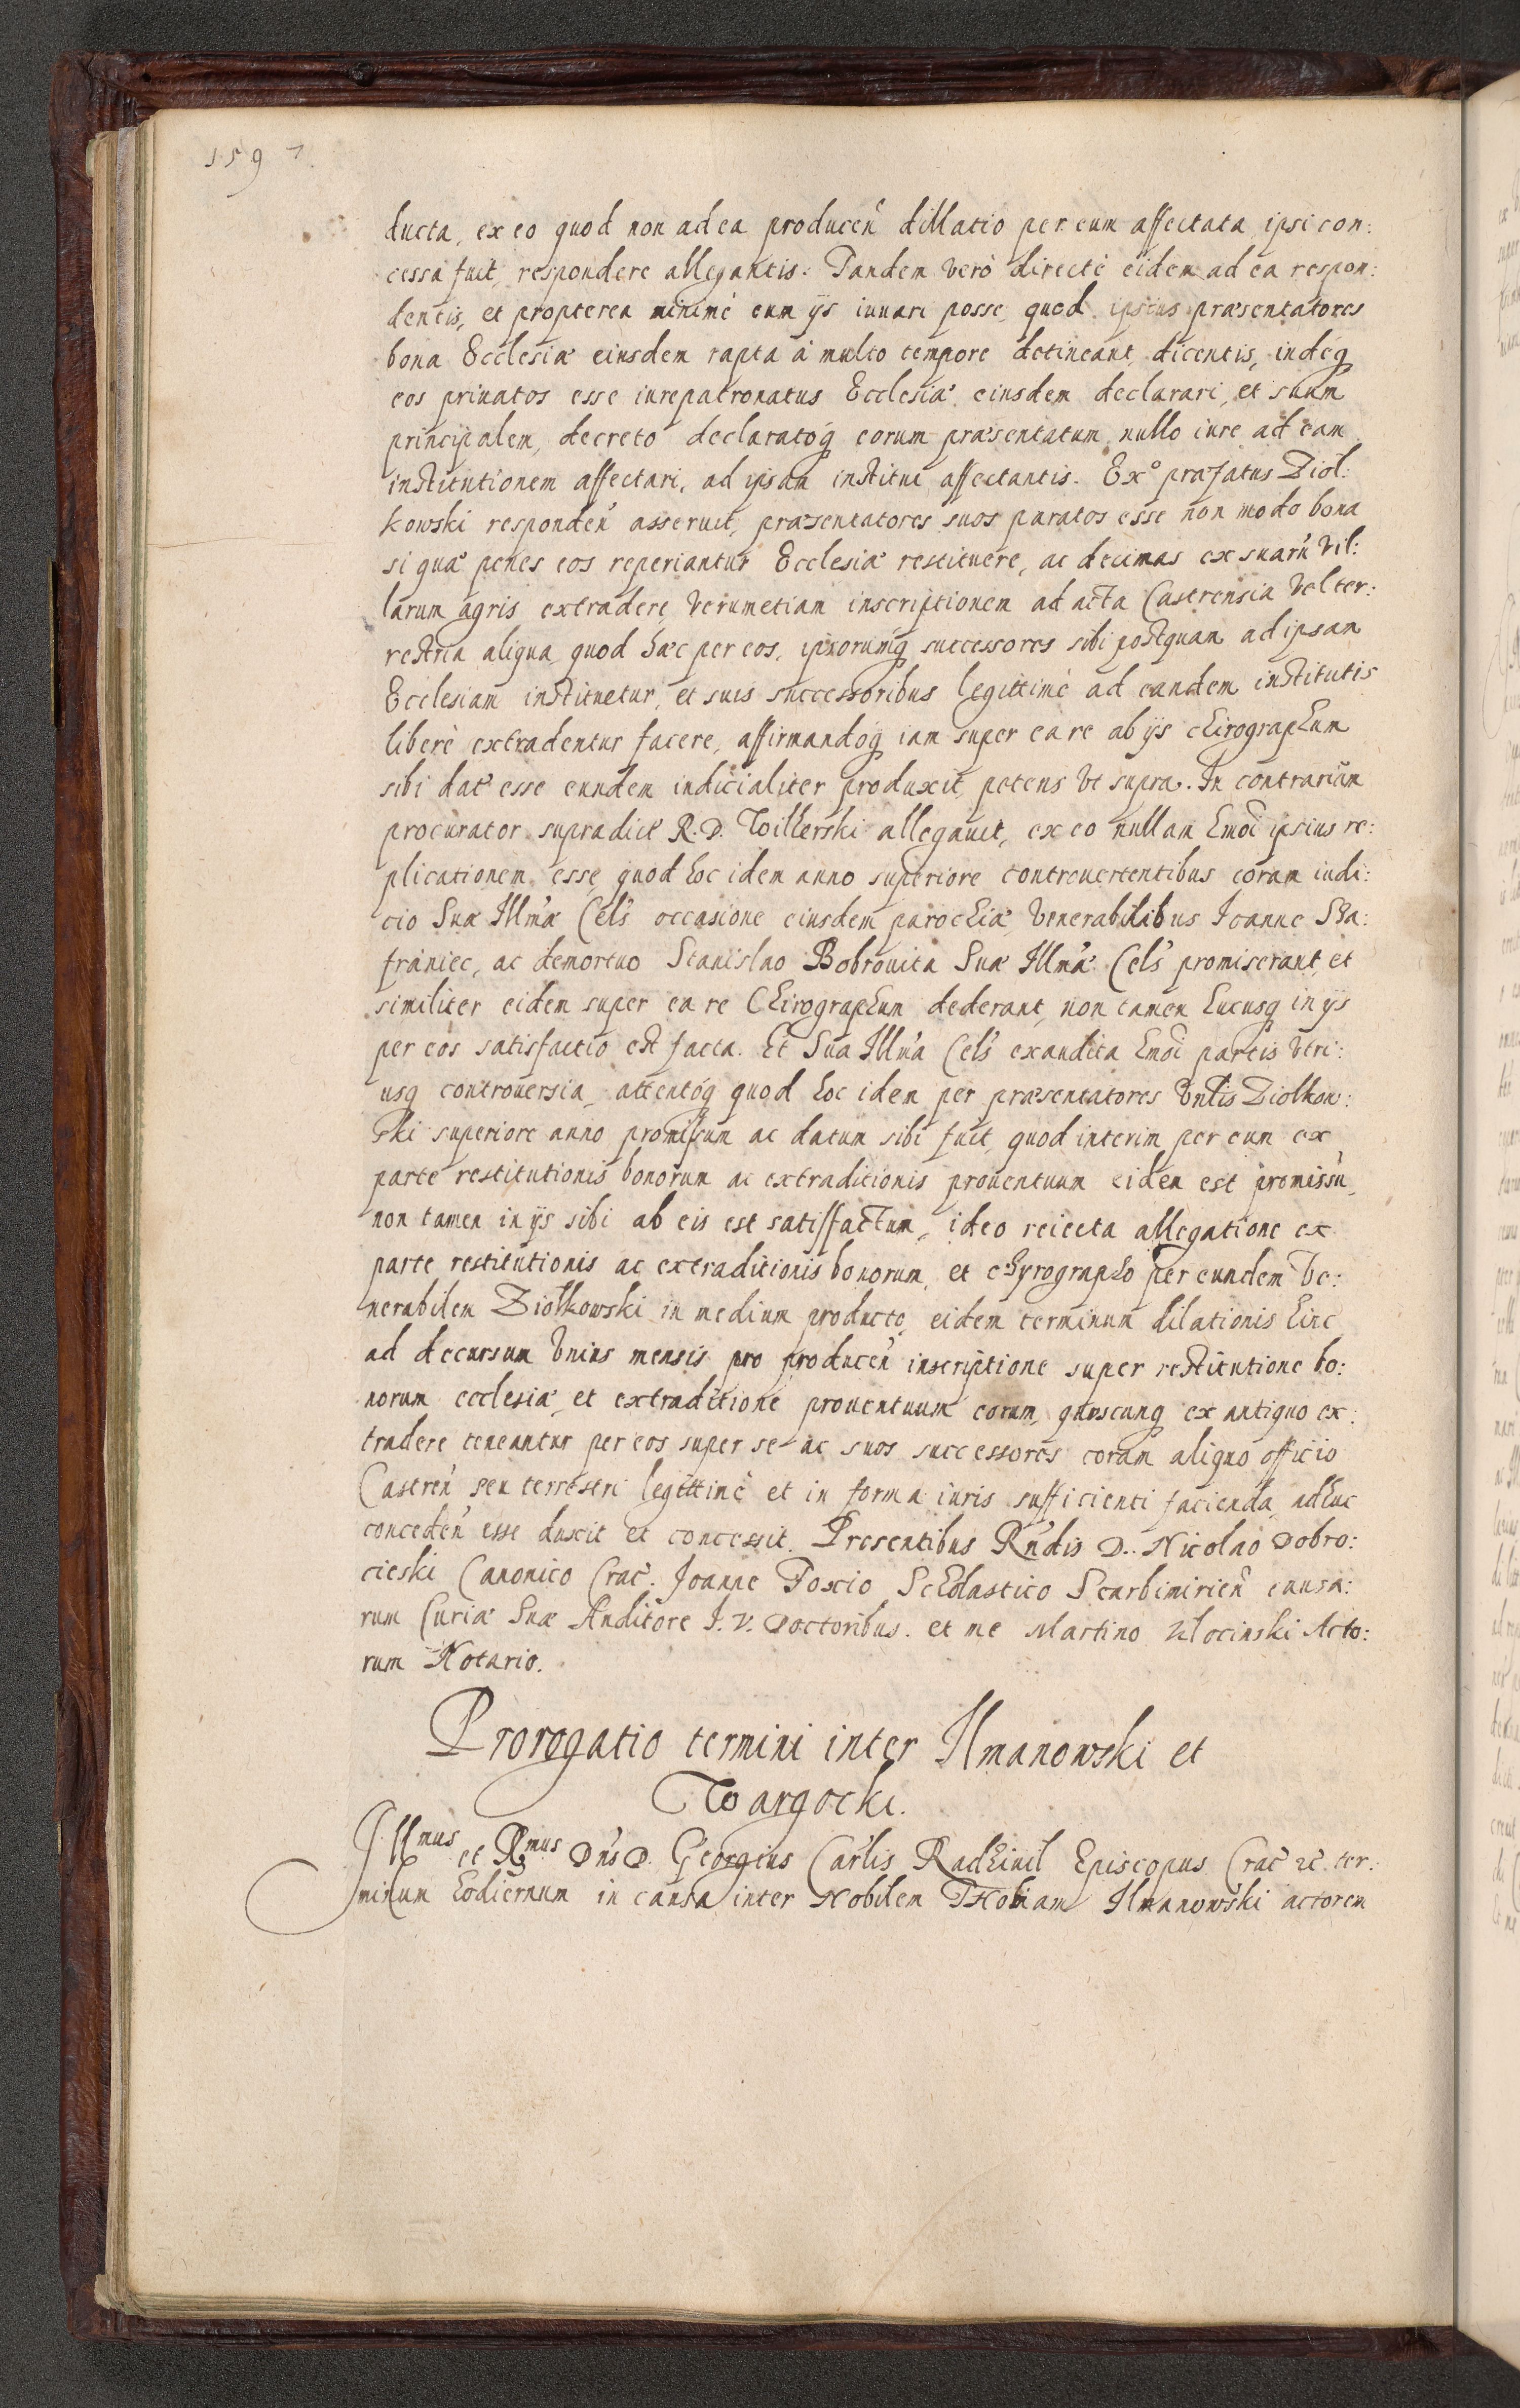 1597.
ducta, ex eo quod non ad ea producen̄ dillatio per eum affectata ipsi con:
cessa fuit, respondere allegantis. Tandem verò directè eidem ad ea respon:
dentis, et propterea minimè eum ijs iuuari posse, quod ipsius præsentatores
bona Ecclesiæ eiusdem rapta à multo tempore detineant, dicentis, indeq́
eos priuatos esse iurepatronatus Ecclesiæ eiusdem declarari, et suum
principalem, decreto declaratoq́ eorum præsentatum nullo iure ad eam
institutionem affectari, ad ipsam institui affectantis. Exº præfatus Ziol:
kowski responden̄ asseruit, præsentatores suos paratos esse non modo bona
si quæ penes eos reperiantur Ecclesiæ restituere, ac decimas ex suarū vil:
larum agris extradere, verumetiam inscriptionem ad acta Castrensia vel ter:
restria aliqua, quod hæc per eos, ipsorumq́ successores sibi postquam ad ipsam
Ecclesiam instituetur, et suis successoribus legittimè ad eandem institutis
liberè extradentur facere, affirmandoq́ iam super ea re ab ijs chirographum
sibi dat̄ esse eundem iudicialiter produxit, petens vt supra. In contrarium
procurator supradict̄ R. D. Wilkerski allegauit, ex eo nullam hmōi ipsius re:
plicationem esse, quod hoc idem anno superiore controuertentibus coram iudi:
cio Suæ Illmæ Cels̄ occasione eiusdem parochiæ, venerabilibus Ioanne Sza:
franiec, ac demortuo Stanislao Bobrouita Suæ Illmæ Cels̄ promiserant, et
similiter eidem super ea re Chirographum dederant, non tamen hucusq́ in ijs
per eos satisfactio est facta. Et Sua Illma Cels̄ exaudita hmōi partis vtri:
usq́ controuersia, attentoq́ quod hoc idem per præsentatores vnlis Ziolkow:
ski superiore anno promissum ac datum sibi fuit, quod interim per eum ex
parte restitutionis bonorum ac extraditionis prouentuum eidem est promissū,
non tamen in ijs sibi ab eis est satisfactum, ideo reiecta allegatione ex
parte restitutionis ac extraditionis bonorum, et chyrographo per eundem ve:
nerabilem Ziolkowski in medium producto, eidem terminum dilationis hinc
ad decursum vnius mensis pro producen̄ inscriptione super restitutione bo:
norum ecclesiæ, et extraditione prouentuum eorum, quoscunq́ ex antiquo ex:
tradere teneantur per eos super se ac suos successores coram aliquo officio
Castren̄ seu terrestri legittimè et in forma iuris sufficienti facienda, adhuc
conceden̄ esse duxit et concessit. Presentibus Rn̄dis D. Nicolao Dobro:
cieski Canonico Crac̄. Joanne Foxio Scholastico Scarbimirien̄ causa:
rum Curiæ Suæ Auditore I. V. Doctoribus. et me Martino Klocinski Acto:
rum Notario.
Prorogatio termini inter Ilmanowski et
Wargocki.
Illmus et Rmus Dn̄s D. Georgius Car̄lis Radziuil Episcopus Crac̄ ꝛc̄ ter:
minum hodiernum in causa inter Nobilem Thobiam Ilmanowski actorem